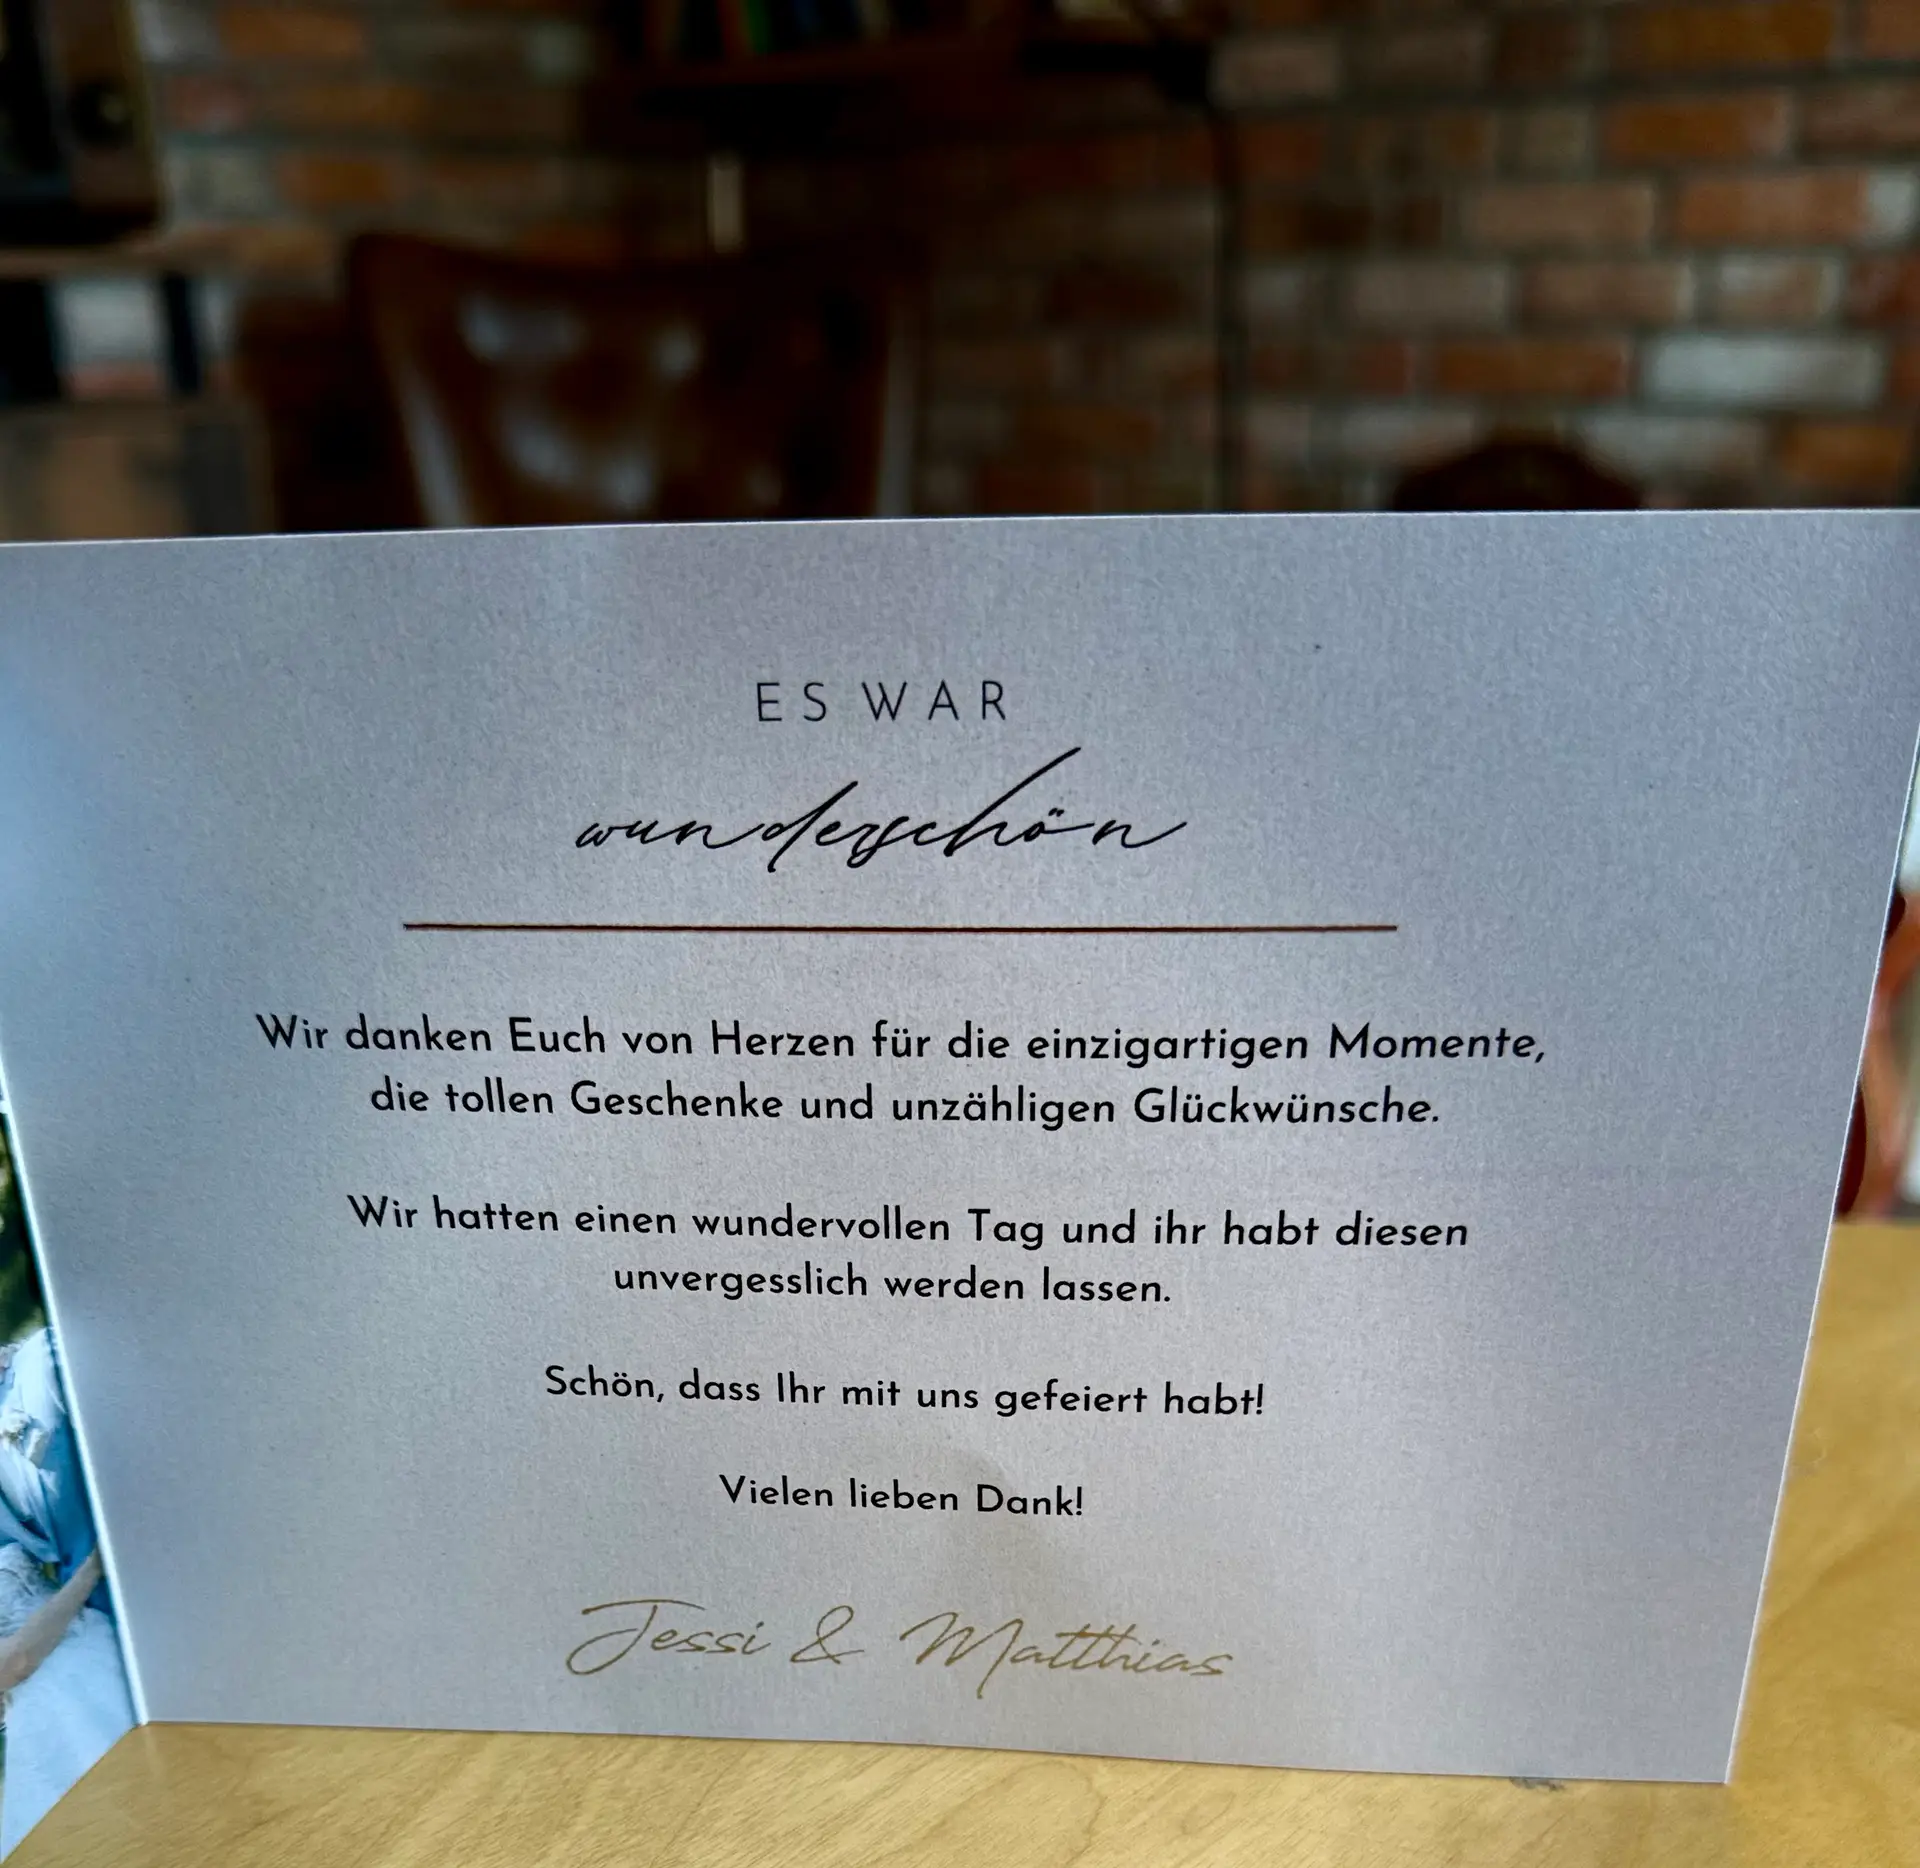 ES WAR
wunderschön
Wir danken Euch von Herzen für die einzigartigen Momente,
die tollen Geschenke und unzähligen Glückwünsche.
Wir hatten einen wundervollen Tag und ihr habt diesen
unvergesslich werden lassen.
Schön, dass Ihr mit uns gefeiert habt!
Vielen lieben Dank!
Jessi & Matthias